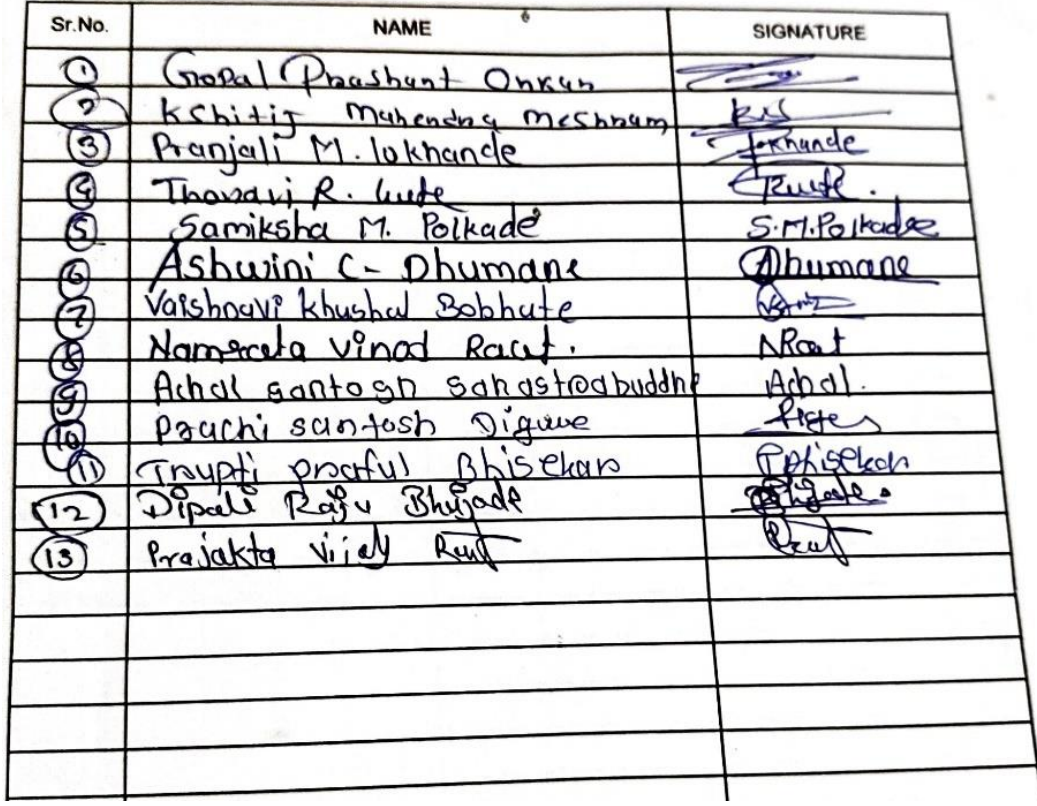 Sr.No. NAME SIGNATURE
1 Gopal Prashant Onkar
2 Kshitij Mahendra Meshram
3 Pranjali M. lokhande Lokhande
4 R. Kute.
5 Samiksha M. Polkade S.M.Polkade
6 Ashwini C- Dhumane Dhumane
7 Vaishnavi Khushal Bobhate
8 Namrata Vinod Raut. NRaut
9 Achal santosh sahastrabuddhe Achal.
10 Prachi santosh
11 Trupti prafful Bhisekar Bhisekar
12 Dipali Raju Bhujade
13 Prajakta Vijay Raut Raut